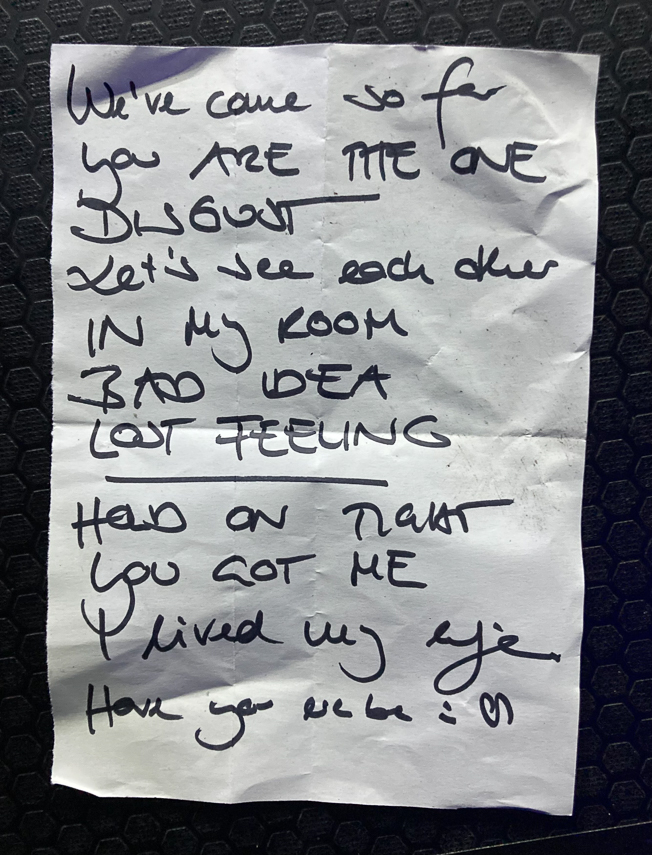 We've come so far
you ARE THE ONE
DISGUST
Let's see each other
IN My ROOM
BAD IDEA
LOST FEELING
HOLD ON TIGHT
YOU GOT ME
I lived my
Have you :